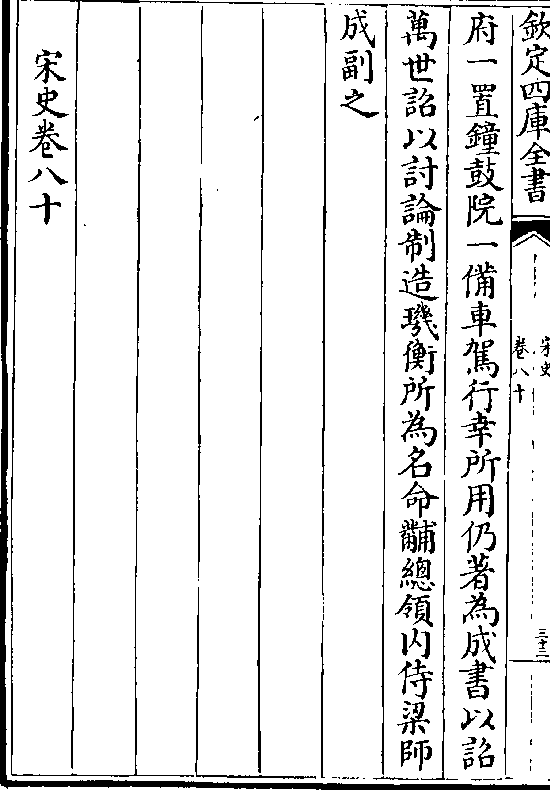 欽定四庫全書
宋史
卷八十
三十二
府一置鐘鼓院一備車駕行幸所用仍著為成書以詔
萬世詔以討論制造璣衡所為名命黼總領内侍梁師
成副之
宋史卷八十